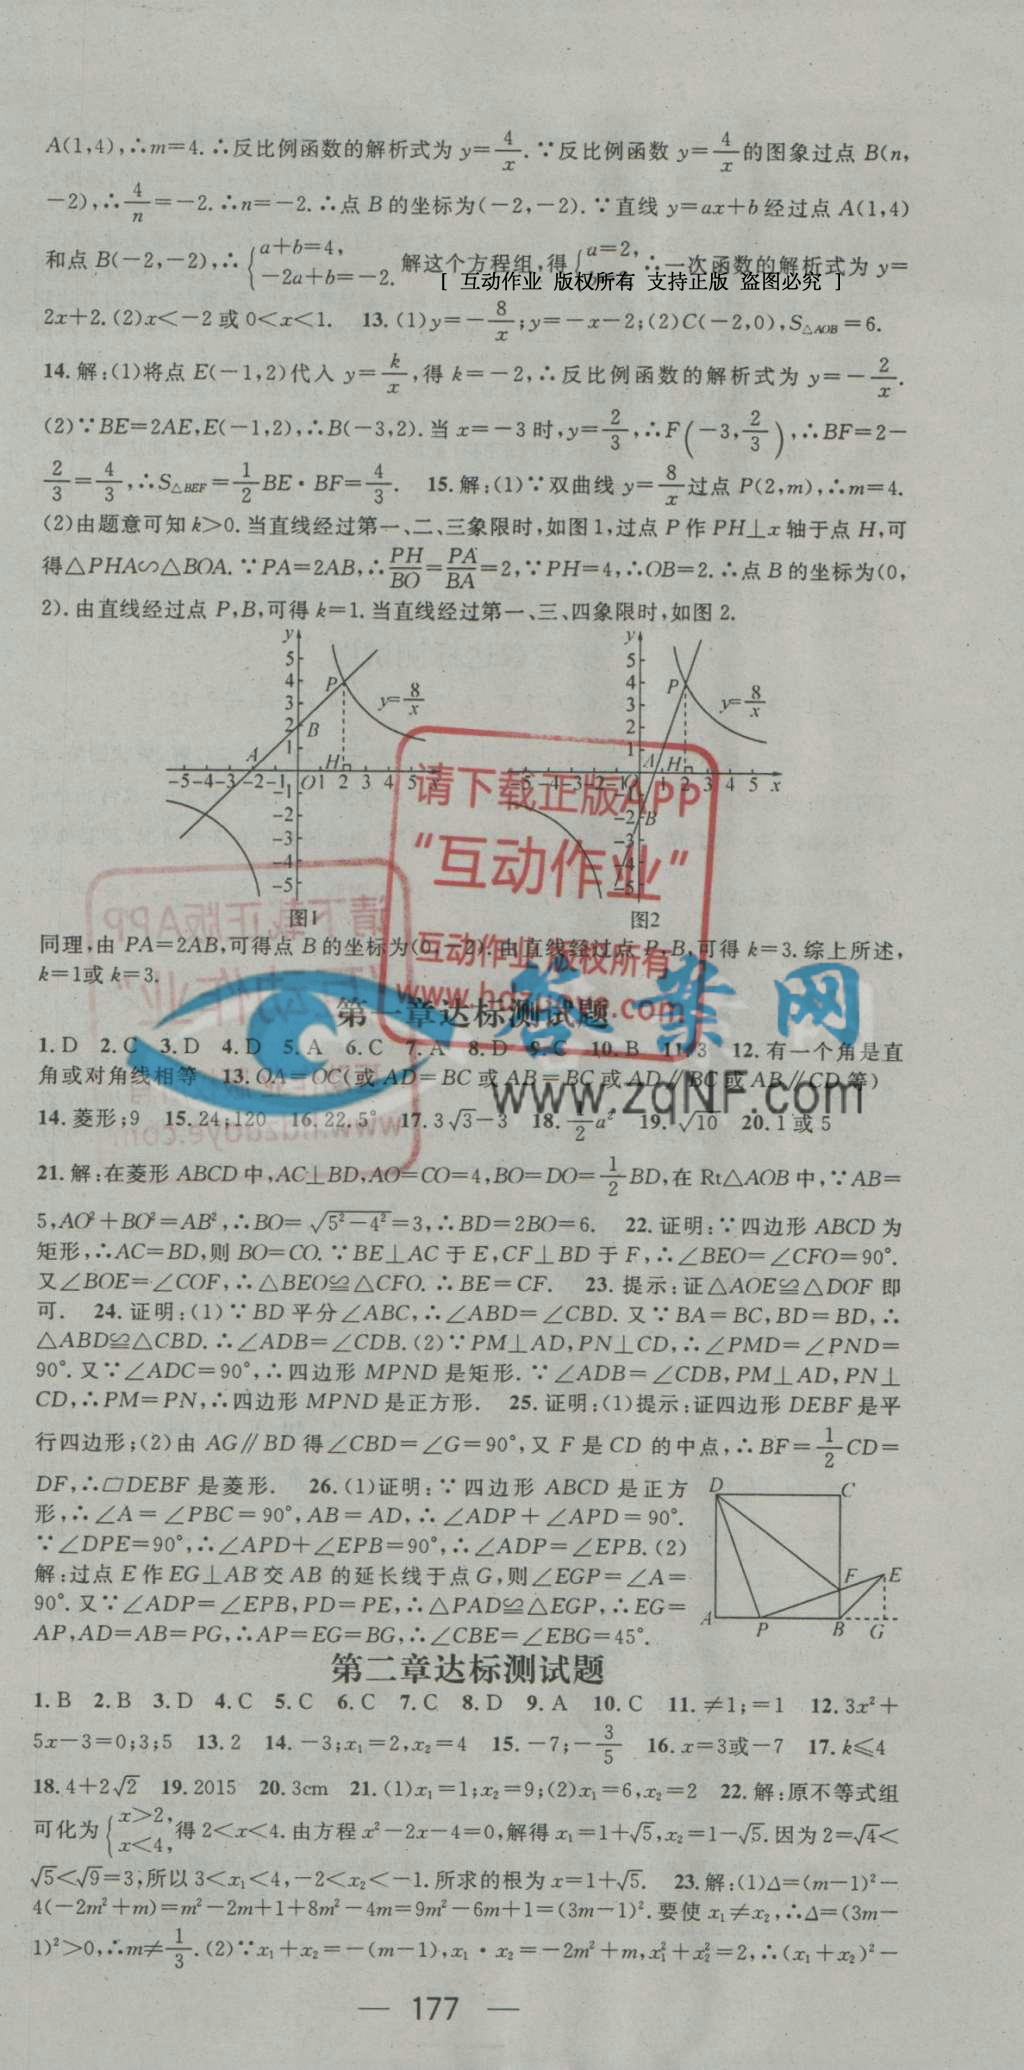 A(1,4),∴m=4.∴反比例函数的解析式为 y=4/x.∵反比例函数 y=4/x的图象过点 B(n,
-2),∴4/n=-2.∴n=-2.∴点 B的坐标为(-2,-2).∵直线 y=ax+b经过点 A(1,4)
和点 B(-2,-2),∴{a+b=4, -2a+b=-2. 解这个方程组,得{a=2, ∴一次函数的解析式为 y=
[ 互动作业 版权所有 支持正版 盗图必究 ]
2x+2.(2)x<-2 或 0<x<1. 13.(1)y=-8/x;y=-x-2;(2)C(-2,0),S△AOB=6.
14.解:(1)将点 E(-1,2)代入 y=k/x,得 k=-2,∴反比例函数的解析式为 y=-2/x.
(2)∵BE=2AE,E(-1,2),∴B(-3,2).当 x=-3 时,y=2/3,∴F(-3,2/3),∴BF=2-
2/3=4/3,∴S△BEF=1/2BE·BF=4/3. 15.解:(1)∵双曲线 y=8/x过点 P(2,m),∴m=4.
(2)由题意可知 k>0.当直线经过第一、二、三象限时,如图1,过点 P 作 PH⊥x 轴于点 H,可
得△PHA∽△BOA.∵PA=2AB,∴PH/BO=PA/BA=2,∵PH=4,∴OB=2.∴点 B的坐标为(0,
2).由直线经过点 P,B,可得 k=1.当直线经过第一、三、四象限时,如图 2.
y
5
4
3
2
1
P
y=8/x
B
A
H
-5-4-3-2-1 O 1 2 3 4 5 x
-1
-2
-3
-4
-5
图1
y
5
4
3
2
1
P
y=8/x
A H
-5-4-3-2-1 O 1 2 3 4 5 x
-1
-2 B
-3
-4
-5
图2
请下载正版APP
“互动作业”
互动作业 版权所有
同理,由 PA=2AB,可得点 B的坐标为(0,-2).由直线经过点 P,B,可得 k=3.综上所述,
k=1或 k=3.
答案网
www.zqNF.com
第一章达标测试题
1.D 2.C 3.D 4.D 5.A 6.C 7.A 8.D 9.C 10.B 11.3 12.有一个角是直
角或对角线相等 13.OA=OC(或 AD=BC 或 AB=BC 或 AD∥BC 或 AB∥CD 等)
14.菱形;9 15.24;120 16.22.5° 17.3√3-3 18.1/2a² 19.√10 20.1 或 5
21.解:在菱形 ABCD 中,AC⊥BD,AO=CO=4,BO=DO=1/2BD,在 Rt△AOB 中,∵AB=
5,AO²+BO²=AB²,∴BO=√(5²-4²)=3,∴BD=2BO=6. 22.证明:∵四边形 ABCD 为
矩形,∴AC=BD,则 BO=CO.∵BE⊥AC 于 E,CF⊥BD 于 F,∴∠BEO=∠CFO=90°.
又∠BOE=∠COF,∴△BEO≌△CFO.∴BE=CF. 23.提示:证△AOE≌△DOF 即
可. 24.证明:(1)∵BD 平分∠ABC,∴∠ABD=∠CBD.又∵BA=BC,BD=BD,∴
△ABD≌△CBD.∴∠ADB=∠CDB.(2)∵PM⊥AD,PN⊥CD,∴∠PMD=∠PND=
90°.又∵∠ADC=90°,∴四边形 MPND 是矩形.∵∠ADB=∠CDB,PM⊥AD,PN⊥
CD,∴PM=PN,∴四边形 MPND 是正方形. 25.证明:(1)提示:证四边形 DEBF 是平
行四边形;(2)由 AG∥BD 得∠CBD=∠G=90°,又 F 是 CD 的中点,∴BF=1/2CD=
DF,∴▱DEBF 是菱形. 26.(1)证明:∵四边形 ABCD 是正方
形,∴∠A=∠PBC=90°,AB=AD,∴∠ADP+∠APD=90°.
∵∠DPE=90°,∴∠APD+∠EPB=90°,∴∠ADP=∠EPB.(2)
解:过点 E 作 EG⊥AB 交 AB 的延长线于点 G,则∠EGP=∠A=
90°.又∵∠ADP=∠EPB,PD=PE,∴△PAD≌△EGP,∴EG=
AP,AD=AB=PG,∴AP=EG=BG,∴∠CBE=∠EBG=45°.
D C
F E
A P B G
第二章达标测试题
1.B 2.B 3.D 4.C 5.C 6.C 7.C 8.D 9.A 10.C 11.≠1;=1 12.3x²+
5x-3=0;3;5 13.2 14.-3;x₁=2,x₂=4 15.-7;-3/5 16.x=3或-7 17.k⩽4
18.4+2√2 19.2015 20.3cm 21.(1)x₁=1;x₂=9;(2)x₁=6,x₂=2 22.解:原不等式组
可化为{x>2, x<4, 得 2<x<4.由方程 x²-2x-4=0,解得 x₁=1+√5,x₂=1-√5.因为2=√4<
√5<√9=3,所以 3<x₁<4,-2<x₂<-1.所求的根为 x=1+√5. 23.解:(1)Δ=(m-1)²-
4(-2m²+m)=m²-2m+1+8m²-4m=9m²-6m+1=(3m-1)².要使 x₁≠x₂,∴Δ=(3m-
1)²>0,∴m≠1/3.(2)∵x₁+x₂=-(m-1),x₁·x₂=-2m²+m,x₁²+x₂²=2,∴(x₁+x₂)²-
— 177 —